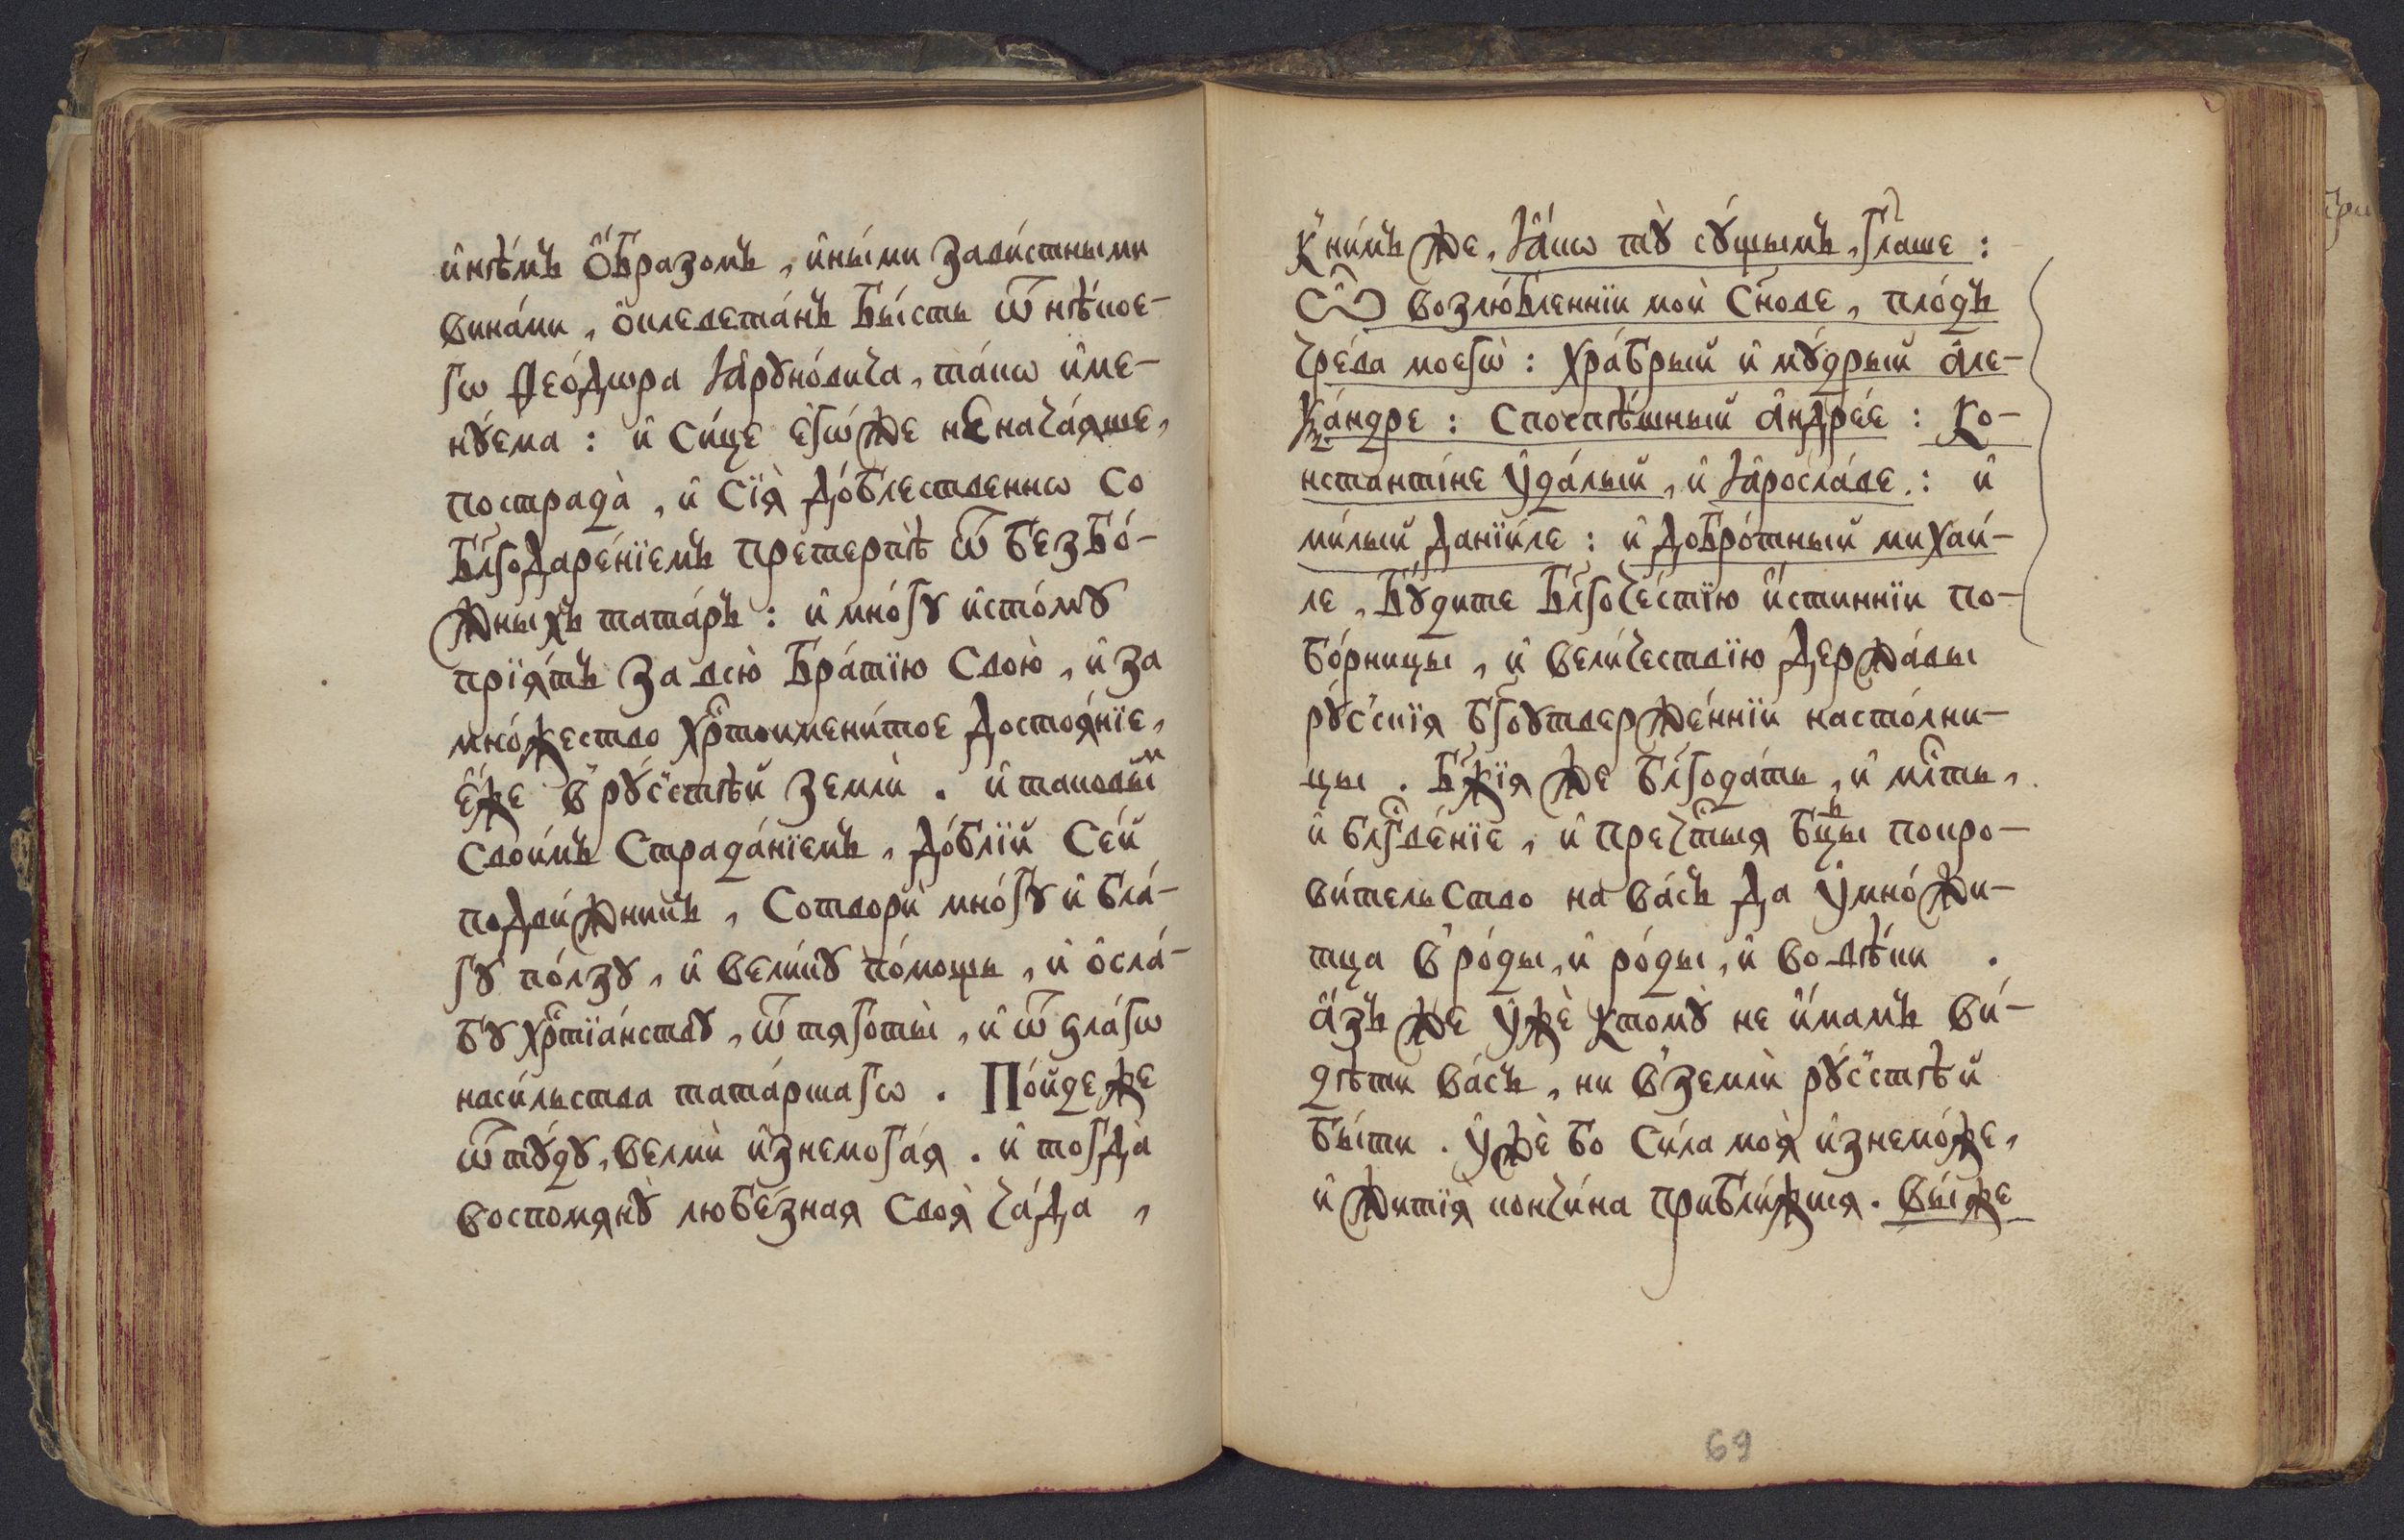 и҆нѣ́мъ ѻ҆́бразомъ, и҆ны́ми зави́стными
вина́ми, ѻ҆клевета́нъ бы́сть ѿ нѣ́кое-
гѡ ѳео́дѡра ꙗ҆рꙋно́вича, та́кѡ и҆ме-
нꙋ́ема : и҆ си́це є҆гѡ́же не нача́ѧше,
пострада̀, и҆ сїѧ̀ до́блественнѡ со
бл҃годаре́нїемъ претерпѣ̀ ѿ безбо́-
жныхъ тата́ръ : и҆ мно́гꙋ и҆сто́мꙋ
прїѧ́тъ за всю̀ бра́тїю свою̀, и҆ за
мно́жество хрⷭ҇тоимени́тое достоѧ́нїе,
є҆́же в рꙋ́сстѣй землѝ . и҆ таковы́м
свои́мъ страда́нїемъ, до́блїй се́й
подви́жникъ, сотворѝ мно́гꙋ и҆ бла́-
гꙋ по́лзꙋ, и҆ вели́кꙋ по́мощь, и҆ ѻ҆сла́-
бꙋ хрⷭ҇тїа́нствꙋ, ѿ тѧготы̀, и҆ ѿ ѕла́гѡ
наси́льства тата́рскагѡ . По́йде же
ѿтꙋ́дꙋ, велмѝ и҆знемога́ѧ . и҆ тогда̀
воспомѧнꙋ̀ любе́знаѧ своѧ̀ ча́да ,
К ни́мъ же, ꙗ҆́кѡ тꙋ̀ сꙋ́щымъ, гл҃аше :
Ѽ возлю́бленнїи моѝ сн҃ове, пло́дъ
чре́ва моегѡ̀ : хра́брый и҆ мꙋ́дрый а҆ле-
ѯа́ндре : споспѣ́шный а҆ндре́е : ко-
нстанті́не ᲂу҆да́лый, и҆ ꙗ҆росла́ве : и҆
ми́лый данїи́ле : и҆ добро́тный михаи́-
ле, бꙋ́дите бл҃гоче́стїю и҆́стиннїи по-
бо́рницы, и҆ вели́чествїю держа́вы
рꙋ́сскїѧ бл҃гоꙋтверже́ннїи насто́лни-
цы . бж҃їѧ же бл҃года́ть, и҆ млⷭ҇ть,
и҆ блⷭ҇гве́нїе, и҆ пречⷭ҇тыѧ бцⷣы покро-
ви́тельство на ва́съ да ᲂу҆мно́жи-
тца в ро́ды, и҆ ро́ды, и҆ во вѣ́ки .
а҆́зъ же ᲂу҆жѐ ктомꙋ̀ не и҆́мамъ ви́-
дѣти ва́съ, ни в землѝ рꙋ́сстѣй
бы́ти . ᲂу҆жѐ бо си́ла моѧ̀ и҆знемо́же,
и҆ житїѧ̀ кончи́на прибли́жисѧ . вы́ же
69